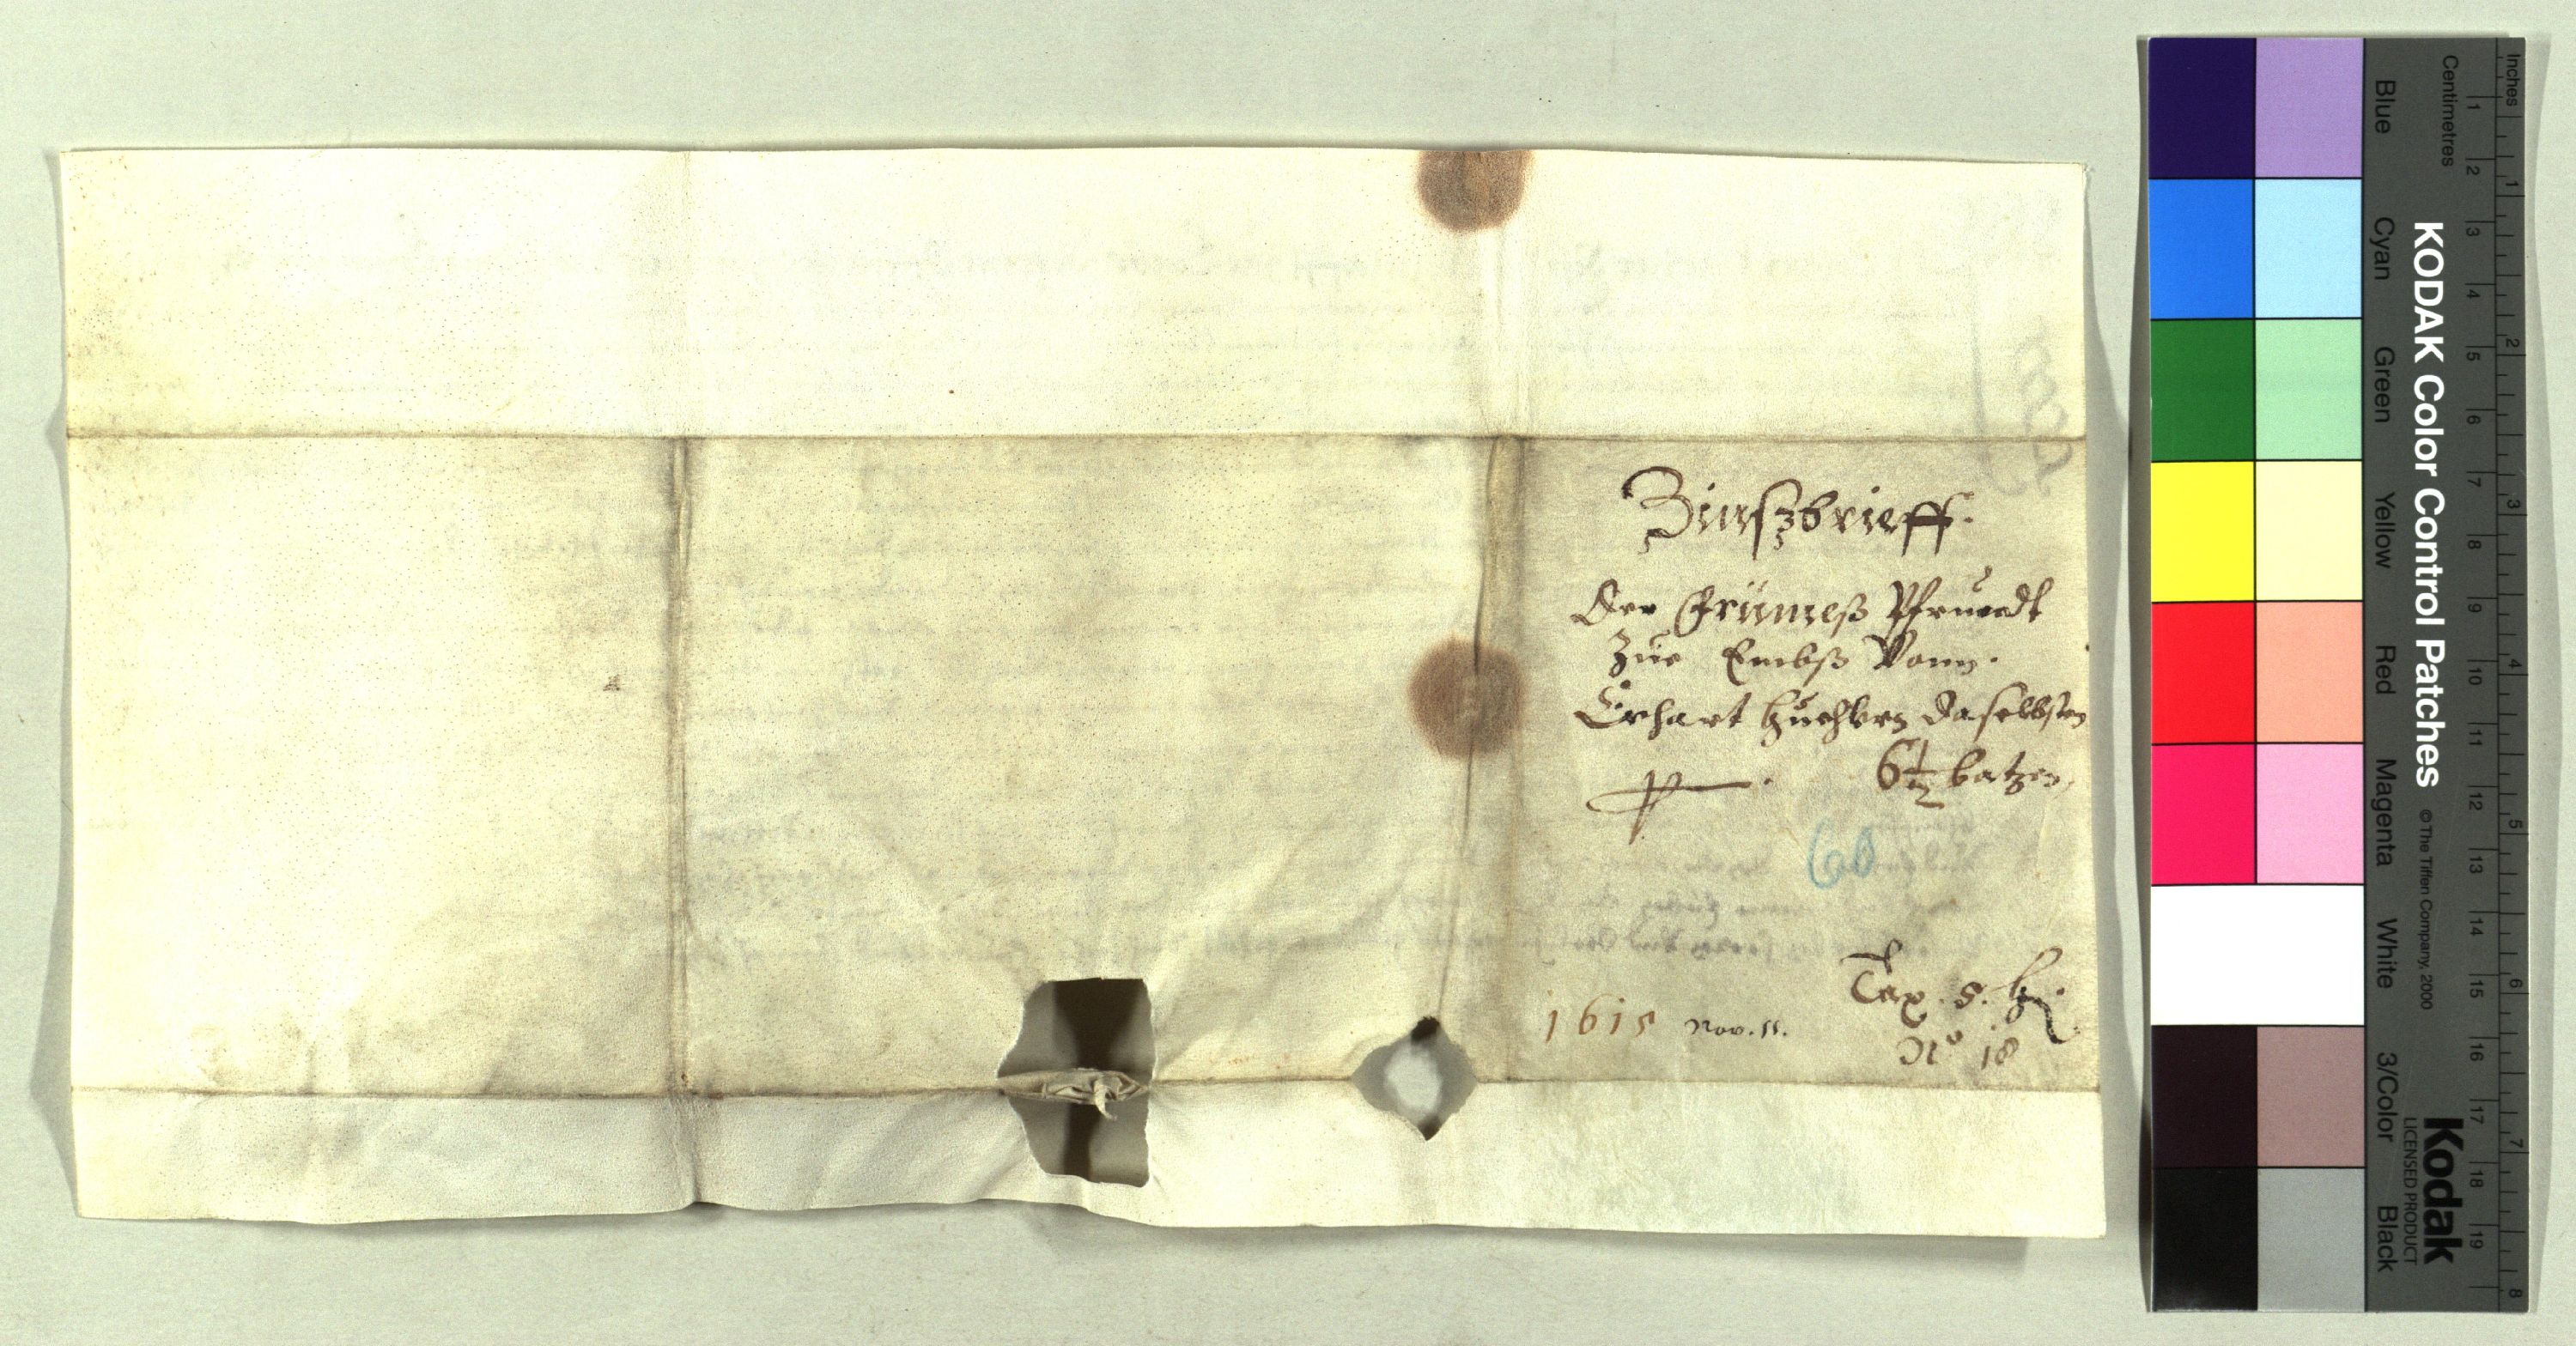 Zinßbrieff.
Der Früimeß Pfruendt
Zue Embß Vonn.
Erhart daselbsten
6½ batzen,
60
Tax. 5. bz.
1615 Nov. 11.
No 18
Inches
Centimetres
Blue Cyan Green Yellow Red Magenta White 3/Color Black
KODAK Color Control Patches
© The Tiffen Company, 2000
Kodak
LICENSED PRODUCT
1 2 3 4 5 6 7 8 9 10 11 12 13 14 15 16 17 18 19
1 2 3 4 5 6 7 8